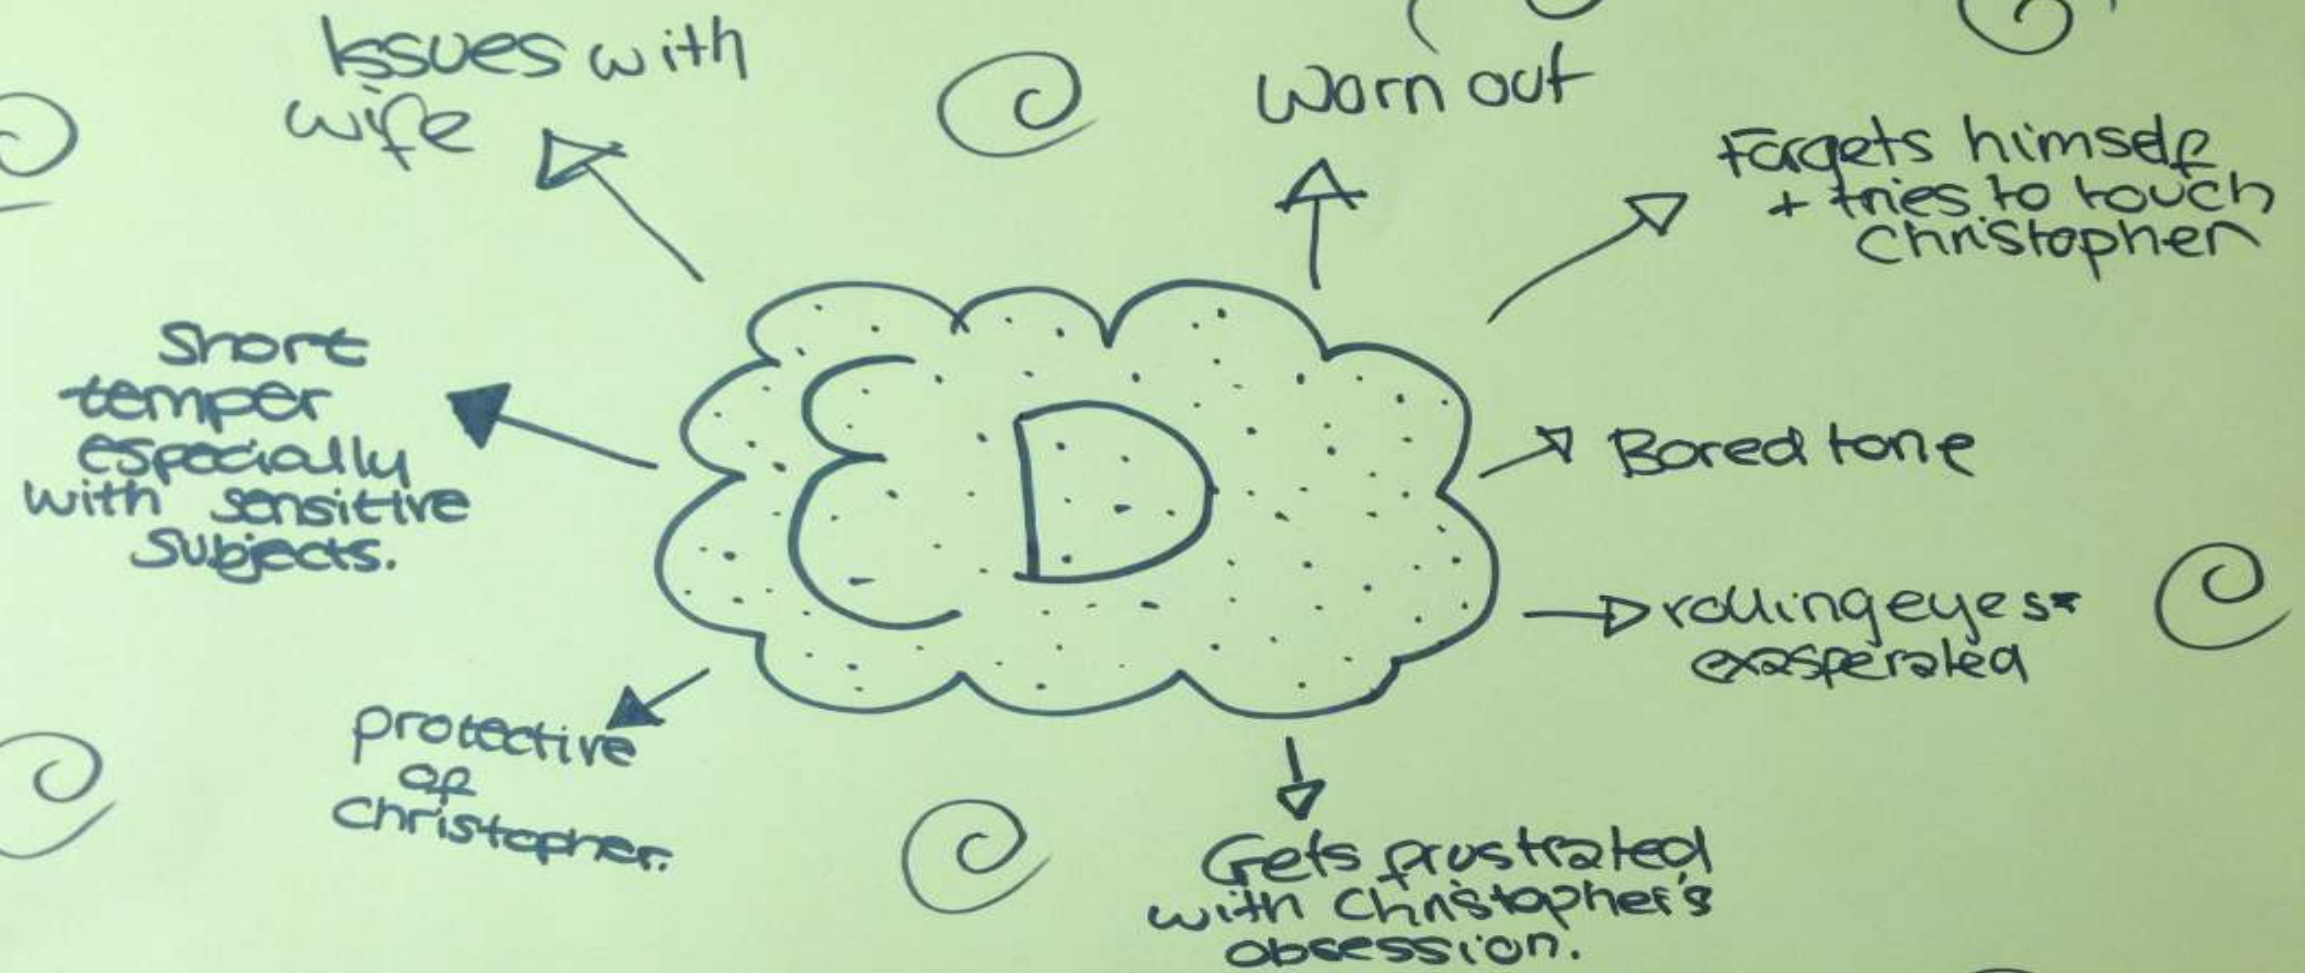 Issues with
wife
Worn out
Forgets himself
+ tries to touch
Christopher
Short
temper
especially
with sensitive
subjects.
ED
Bored tone
rolling eyes
exasperated
protective
of
Christopher.
Gets frustrated
with Christopher's
obsession.